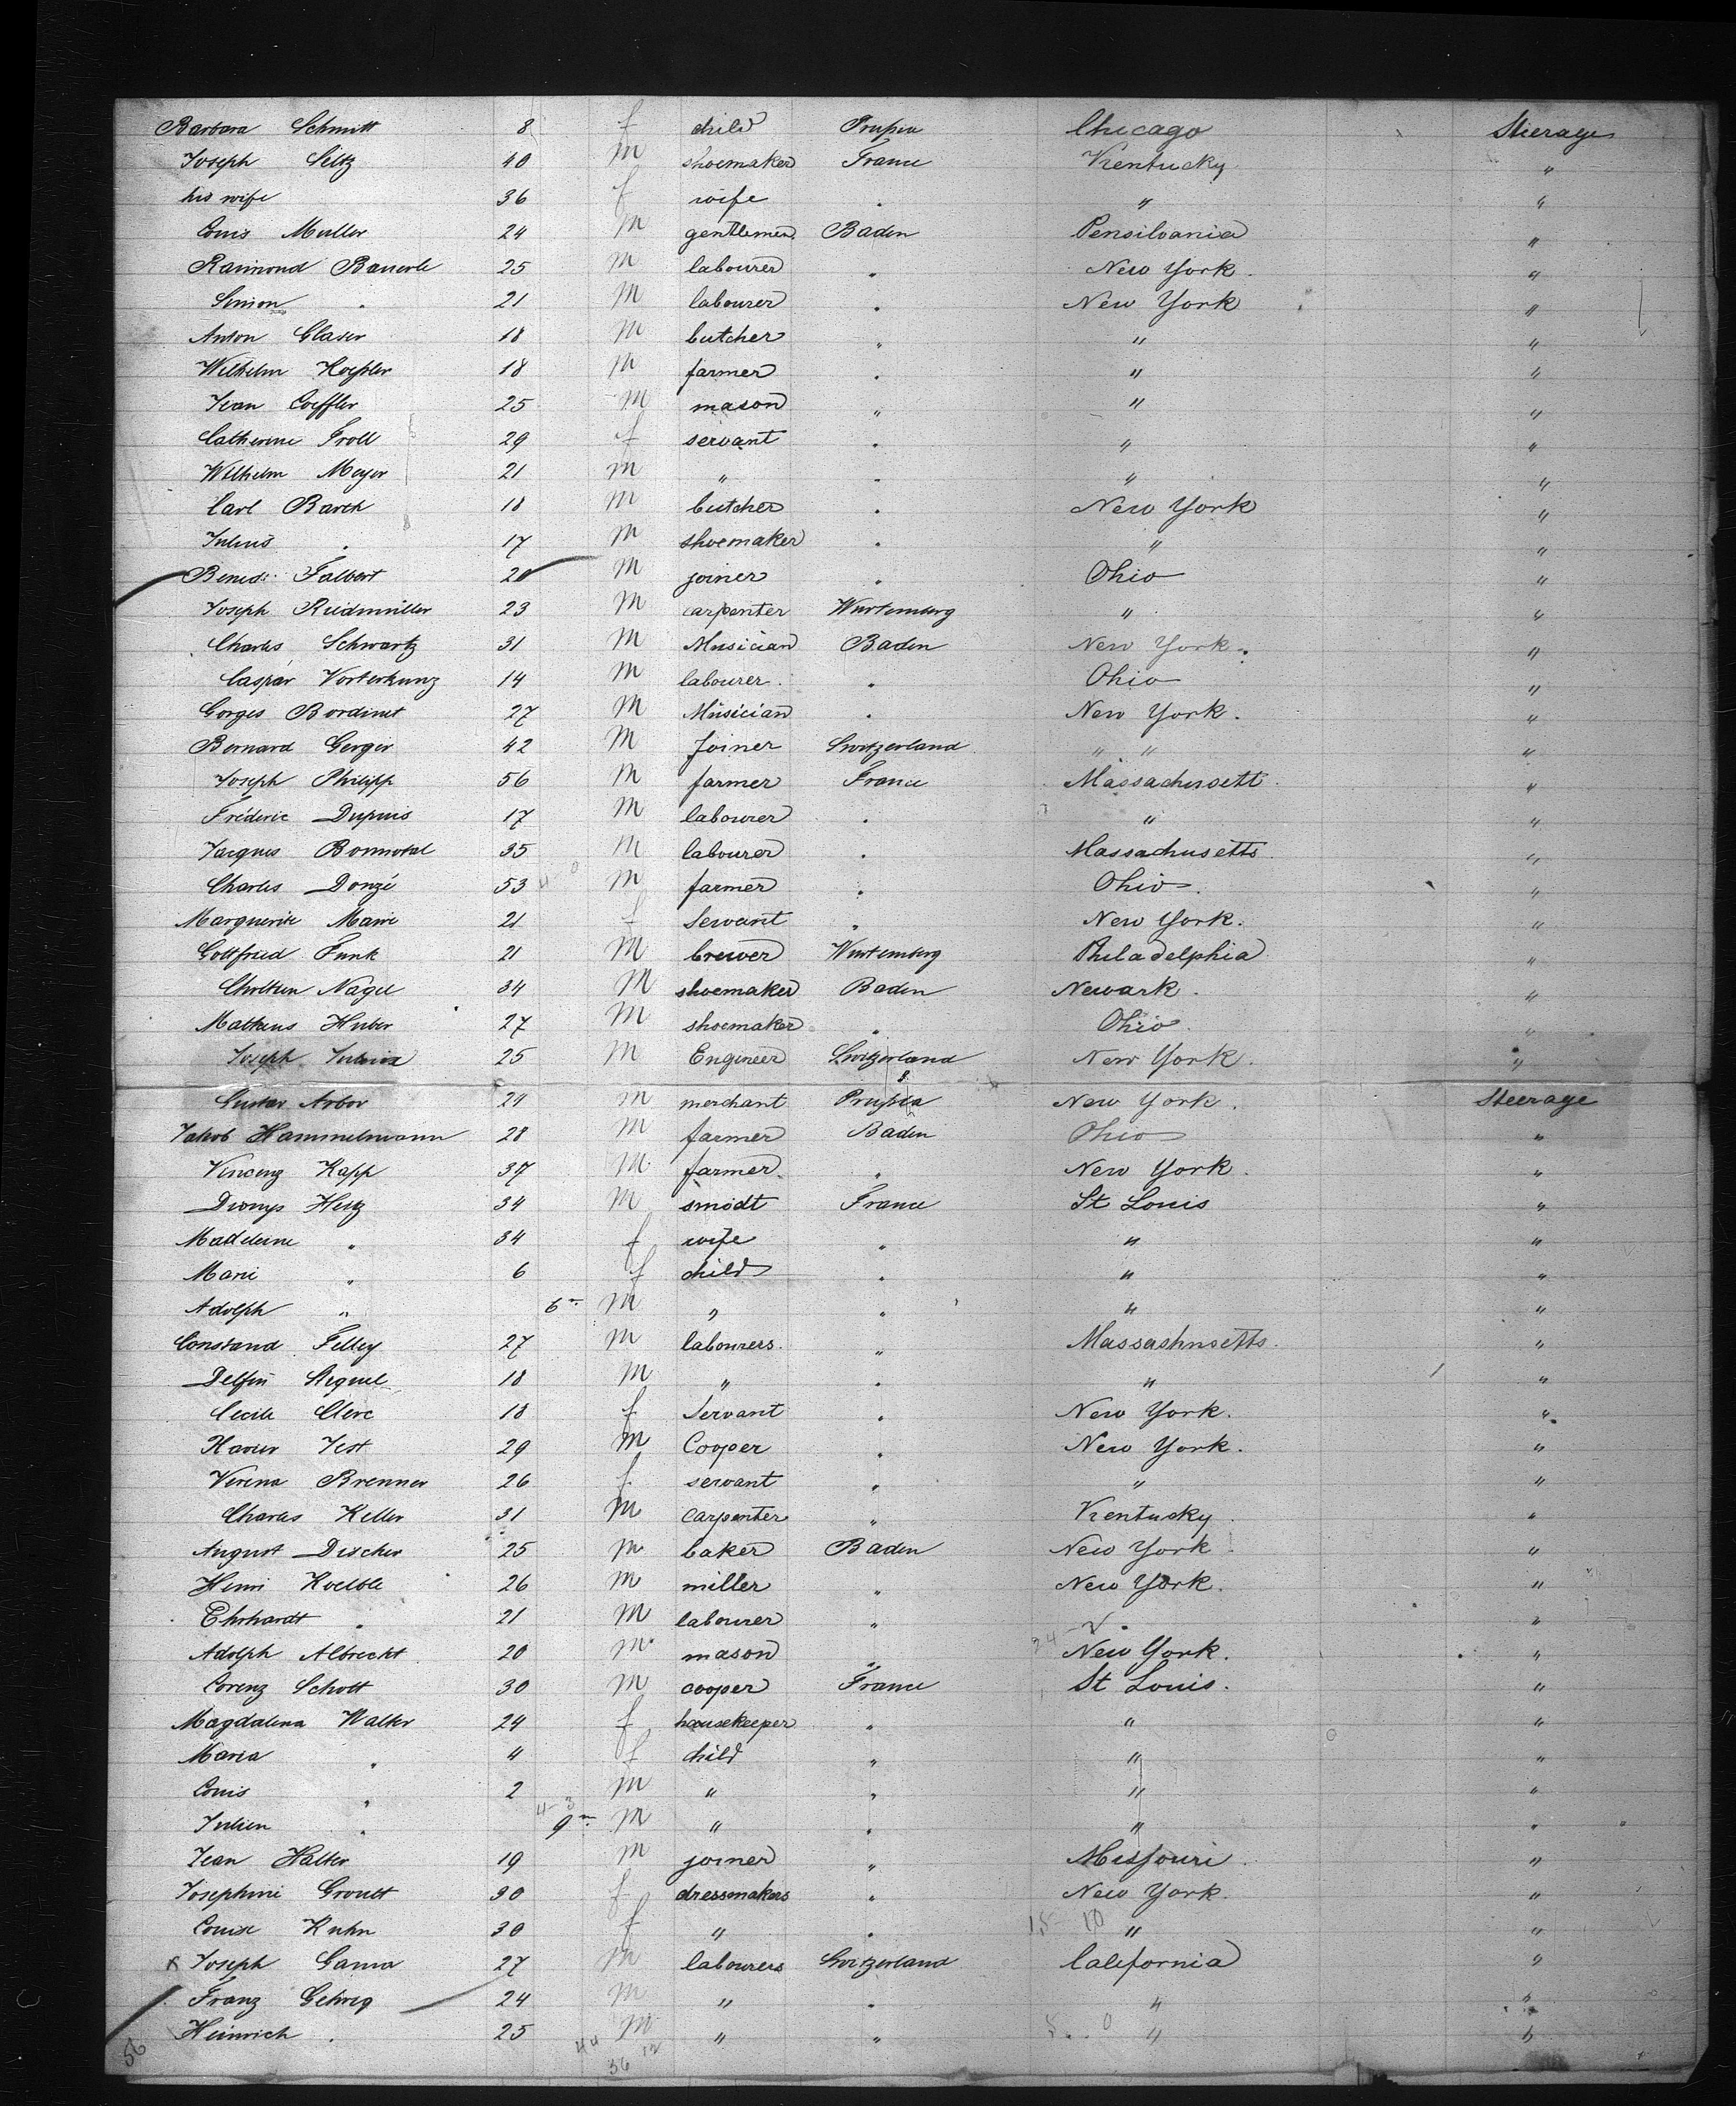 Barbara Schmitt 8 f child Prussia Chicago Steerage
Joseph Seltz 40 m shoemaker France Kentucky "
his wife 36 f wife " " "
Louis Muller 24 m gentlemen Baden Pensilvania "
Raimond Bauerle 25 m labourer " New York. "
Simon " 21 m labourer " New York "
Anton Glaser 18 m butcher " " "
Wilhelm Koessler 18 m farmer " " "
Jean Loeffler 25 m mason " " "
Catherine Troll 29 f servant " " "
Wilhelm Meyer 21 m " " " "
Carl Barck 18 m butcher " New York "
Julius " 17 m shoemaker " " "
Bened. Falbert 20 m joiner " Ohio "
Joseph Riedmuller 23 m carpenter Wurtemberg " "
Charles Schwartz 31 m Musician Baden New York. "
Caspar Vorterkunz 14 m labourer " Ohio "
Gorges Bordinet 27 m Musician " New York. "
Bernard Gerger 42 m Joiner Switzerland " " "
Joseph Philipp 56 m farmer France Massachusett "
Fréderic Dupuis 17 m labourer " " "
Jacques Bonnotal 35 m labourer " Massachusetts "
Charles Donzé 53 m farmer " Ohio. "
Marguerite Marie 21 f Servant " New York. "
Gottfried Funk 21 m brewer Wurtemberg Philadelphia "
Christian Nagel 34 m shoemaker Baden Newark. "
Matheus Huber 27 m shoemaker " Ohio. "
Joseph 25 m Engineer Switzerland New York. "
Gustav Arbor 29 m merchant Prussia New York. Steerage
Jakob Hammelmann 28 m farmer Baden Ohio "
Vincenz Kapp 37 m farmer " New York. "
Dionys Heitz 34 m smidt France St Louis "
Madeleine " 34 f wife " " "
Marie " 6 f child " " "
Adolph " 6m m " " " "
Constand Felley 27 m labourers. " Massashusetts. "
Delfin 18 m " " " "
Cecile Clerc 18 f Servant " New York. "
Xavier Jest 29 m Cooper " New York. "
Verena Brenner 26 f servant " " "
Charles Keller 31 m carpenter " Kentucky "
August Discher 25 m baker Baden New York "
Henri Koelble 26 m miller " New York. "
Ehrhardt " 21 m labourer " " "
Adolph Albrecht 20 m mason " New York. "
Lorenz Schott 30 m cooper France St Louis. "
Magdalena Walter 24 f housekeeper " " "
Maria " 4 f child " " "
Louis " 2 m " " " "
Julien " 9m m " " " "
Jean Halter 19 m joiner " Missouri "
Josephine Groult 30 f dressmakers " New York. "
Louise Kuhn 30 f " " " "
x Joseph Gama 27 m labourers Switzerland California "
Franz Gehrig 24 m " " " "
Heinrich " 25 m " " " "
56 44 12
36